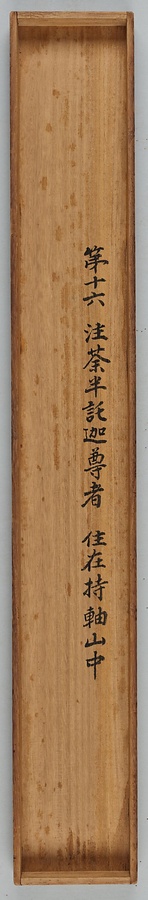 第十六 注荼半託迦尊者 住在持軸山中